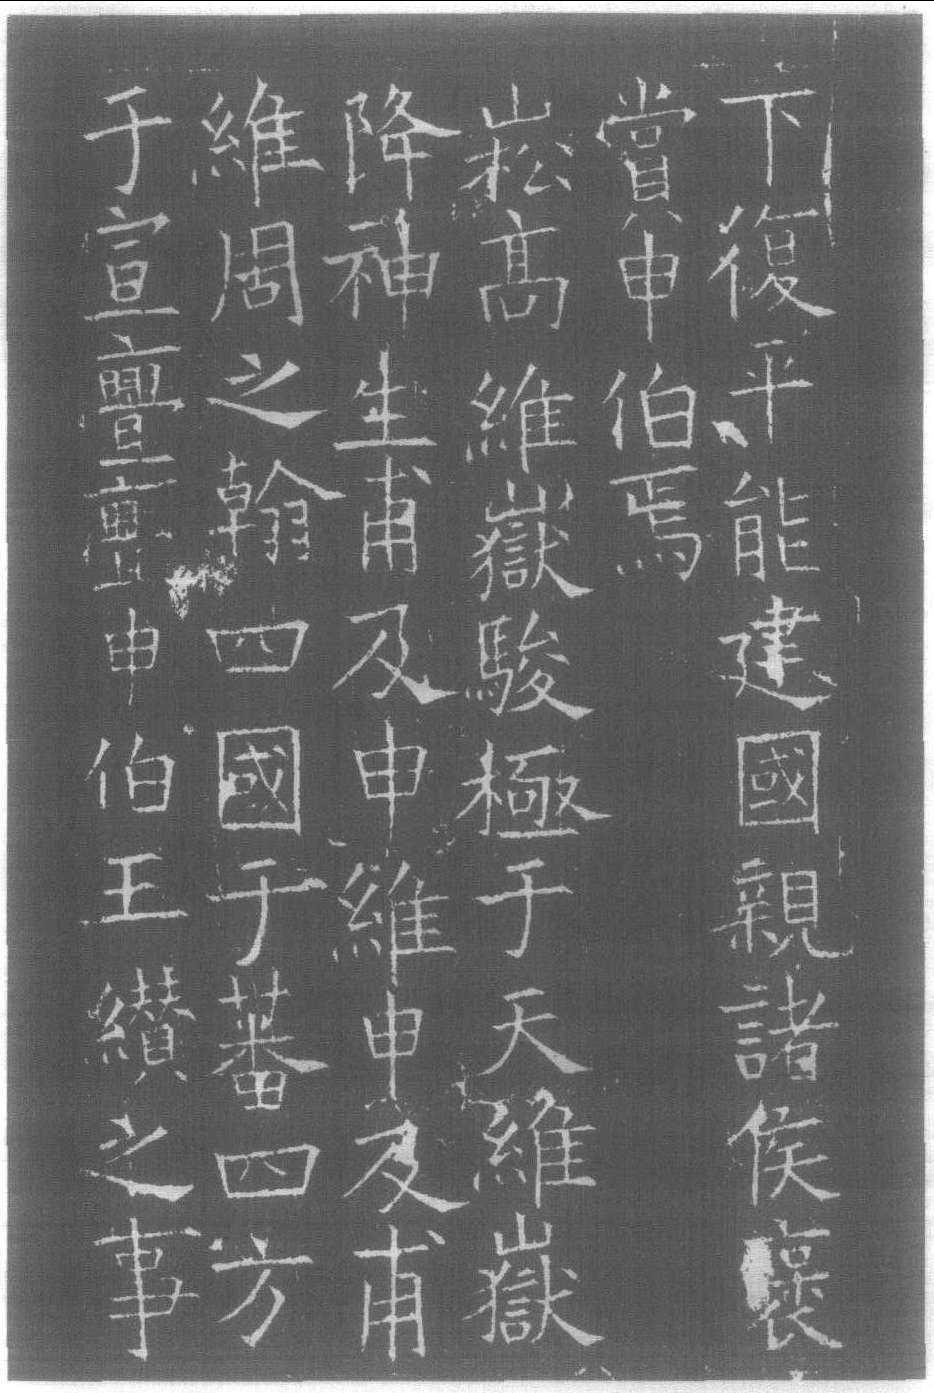 下復平能建國親諸侯襃
賞申伯焉
崧髙維嶽駿極于天維嶽
降神生甫及申維申及甫
維周之翰四國于蕃四方
于宣亹亹申伯王纘之事